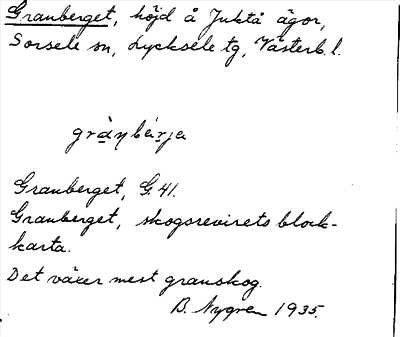 Granberget, höjd å Juktå ägor,
Sorsele sn, Lycksele tg, Västerb. l.
grànbǽrjа
Granberget, G. 41.
Granberget, skogsrevirets block-
karta.
Det växer mest granskog.
B. Nygren 1935.